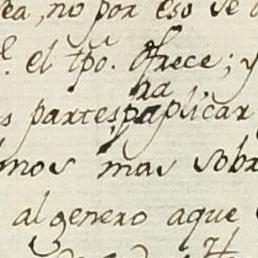 ea, no por eso se
. el tpo. ofrece; y
s partes, para aplicar
mos mas sobr
al genero aque